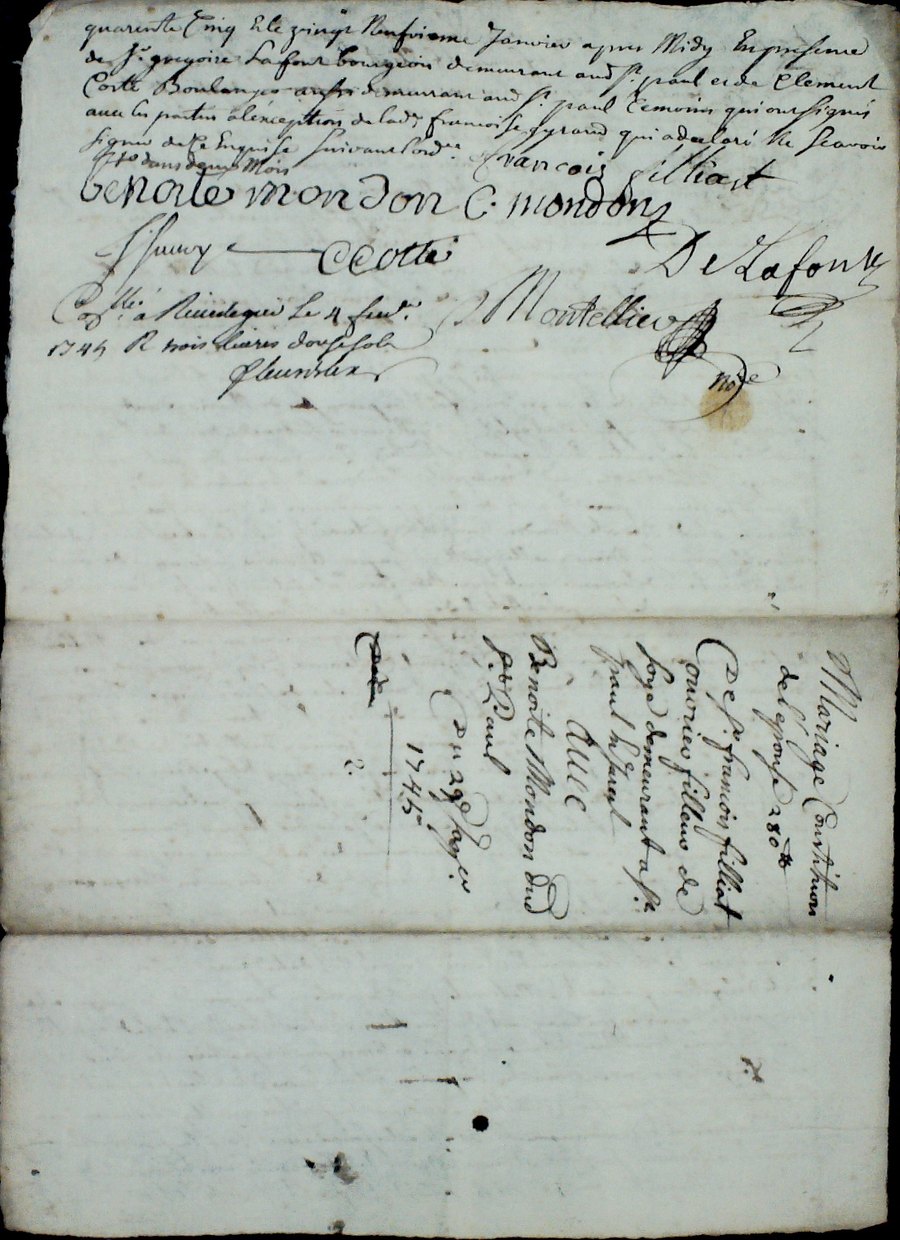 quarente Cinq Et le vingt Neufvieme Janvier apres Midy En presence
de Sr. gregoire Lafont bourgeois demeurant aud St. paul et de Clement
Cotte Boulanger aussi demeurant aud St. paul temoins qui ont signés
avec les parties a léxception de lade francoise gyraud qui a declaré Ne scavoir
signer de ce Enquise suivant lord.e
francois filliast
benoite mondon C. mondon
CCotte
De Lafont
Collé. a le 4 feur.
1745 R trois livres douze sols
Montellier
No.re
Mariage Constitution
de lepouse 280tt
De Sr. francois filliat
ouvrier filleur de
soye demeurant a St.
paul en Jarest
avec
Benoite Mondon dud
St. Paul
Du 29e Janvier
1745